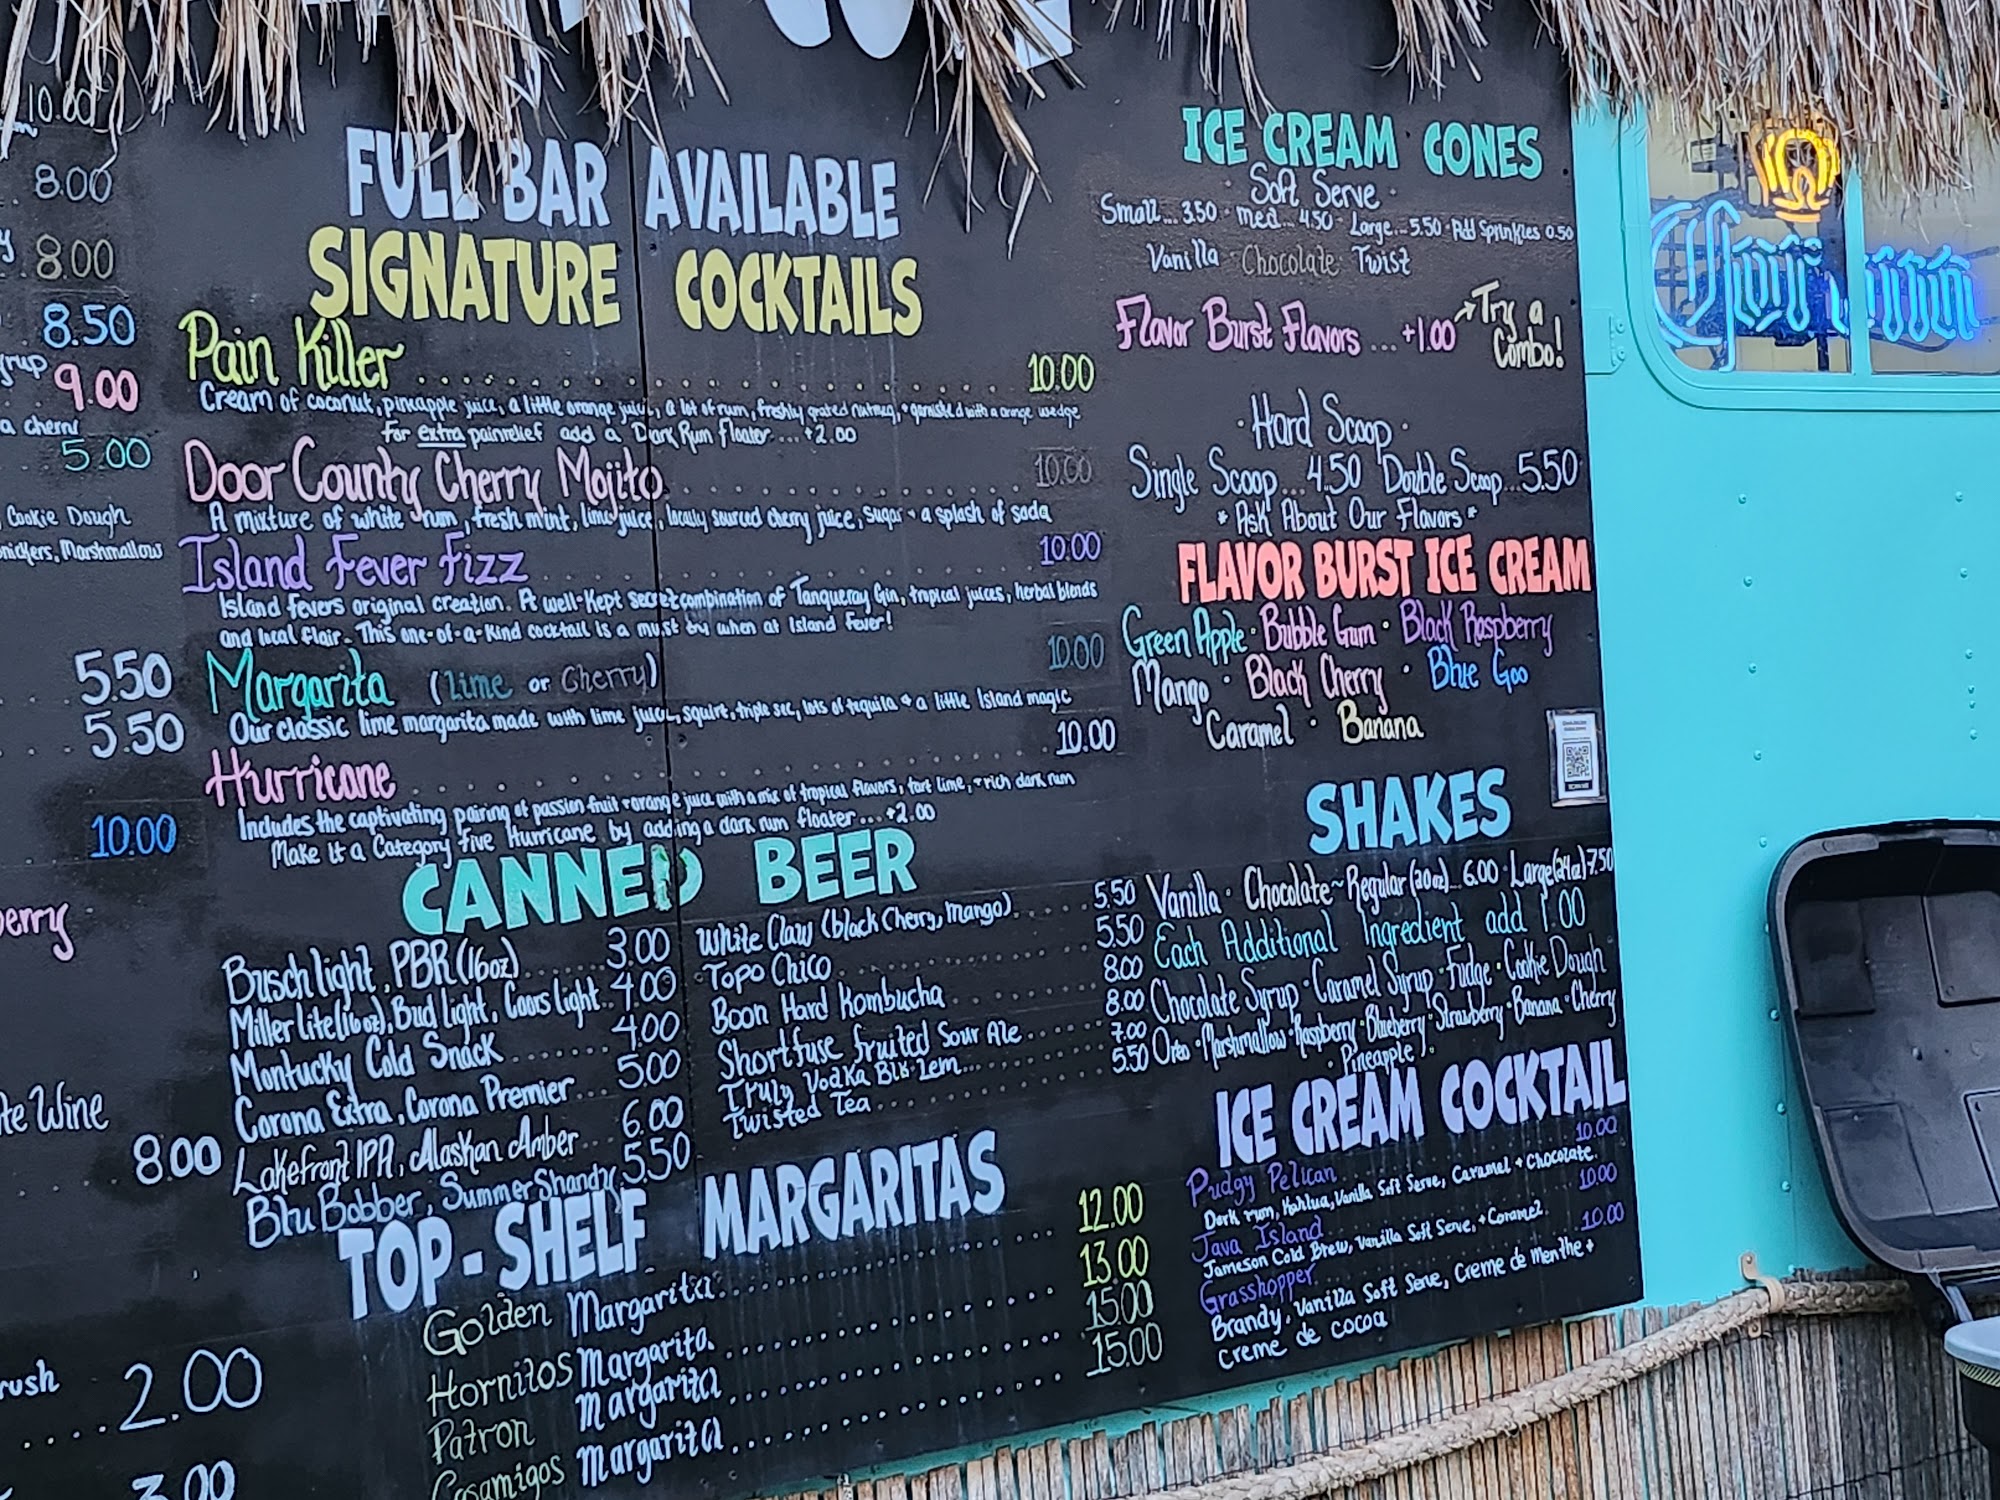 10.00
8.00
8.00
8.50
9.00
a cherry
5.00
Cookie Dough
nickers, Marshmallow
5.50
5.50
10.00
erry
te Wine
8.00
rush
2.00
3.00
FULL BAR AVAILABLE
SIGNATURE COCKTAILS
Pain Killer 10.00
Cream of coconut, pineapple juice, a little orange juice, a lot of rum, freshly grated nutmeg, + garnished with a orange wedge
For extra painrelief add a Dark Rum Floater ... +2.00
Door County Cherry Mojito 10.00
A mixture of white rum, fresh mint, lime juice, locally sourced cherry juice, sugar + a splash of soda
Island Fever Fizz 10.00
Island Fevers original creation. A well-kept secret combination of Tanqueray Gin, tropical juices, herbal blends
and local flair. This one-of-a-kind cocktail is a must try when at Island Fever!
Margarita (Lime or Cherry) 10.00
Our classic lime margarita made with lime juice, squirt, triple sec, lots of tequila + a little Island magic
Hurricane 10.00
Includes the captivating pairing of passion fruit + orange juice with a mix of tropical flavors, tart lime, + rich dark rum
Make it a Category Five Hurricane by adding a dark rum floater ... +2.00
CANNED BEER
Busch light, PBR (16oz) 3.00
Miller lite (16oz), Bud light, Coors light 4.00
Montucky Cold Snack 4.00
Corona Extra, Corona Premier 5.00
Lakefront IPA, Alaskan Amber 6.00
Blu Bobber, Summer Shandy 5.50
White Claw (black Cherry, Mango) 5.50
Topo Chico 5.50
Boon Hard Kombucha 8.00
Shortfuse fruited Sour Ale 8.00
Truly Vodka Blk Lem 7.00
Twisted Tea 5.50
TOP-SHELF MARGARITAS
Golden Margarita 12.00
Hornitos Margarita 13.00
Patron Margarita 15.00
Casamigos Margarita 15.00
ICE CREAM CONES
· Soft Serve ·
Small... 3.50 · med... 4.50 · Large... 5.50 · Add Sprinkles 0.50
Vanilla · Chocolate Twist
Flavor Burst Flavors ... +1.00 Try a
Combo!
· Hard Scoop ·
Single Scoop... 4.50 Double Scoop... 5.50
* Ask About Our Flavors *
FLAVOR BURST ICE CREAM
Green Apple · Bubble Gum · Black Raspberry
Mango · Black Cherry · Blue Goo
Caramel · Banana
SHAKES
Vanilla · Chocolate ~ Regular (20oz)... 6.00 · Large (24oz) 7.50
Each Additional Ingredient add 1.00
Chocolate Syrup · Caramel Syrup · Fudge · Cookie Dough
Oreo · Marshmallow · Raspberry · Blueberry · Strawberry · Banana · Cherry
Pineapple
ICE CREAM COCKTAIL
Pudgy Pelican 10.00
Dark rum, Kahlua, Vanilla Soft Serve, Caramel + Chocolate.
Java Island 10.00
Jameson Cold Brew, Vanilla Soft Serve, + Caramel
Grasshopper 10.00
Brandy, Vanilla Soft Serve, Creme de Menthe +
Creme de cocoa
Corona